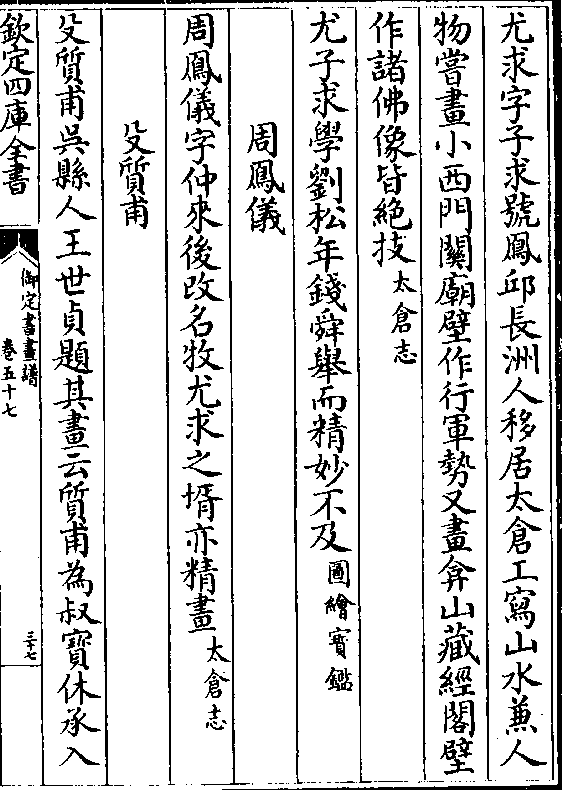 尤求字子求號鳳邱長洲人移居太倉工寫山水兼人
物嘗畫小西門關廟壁作行軍勢又畫弇山藏經閣壁
作諸佛像皆絶技太倉志
尤子求學劉松年錢舜舉而精妙不及圖繪寳鑑
周鳳儀
周鳳儀字仲來後改名牧尤求之壻亦精畫太倉志
殳質甫
殳質甫吳縣人王世貞題其畫云質甫為叔寶休承入
欽定四庫全書
御定書畫譜
卷五十七
三十七